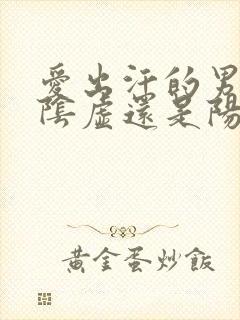 愛出汗的男
陰虛還是陽
黃金蛋炒飯